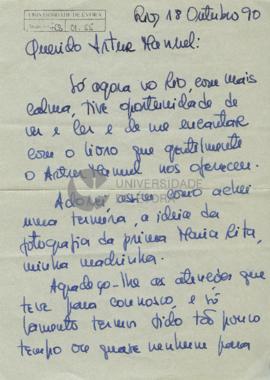 UNIVERSIDADE DE ÉVORA
Rio, 18 Outubro 90
Querido Artur Manuel:
Só agora no Rio, com mais
calma, tive oportunidade de
ver e ler e de me encantar
com o livro que gentilmente
o Artur Manuel nos ofereceu.
UNIVERSIDADE
Adorei assim como achei
uma ternura, a ideia da
fotografia da prima Maria Rita,
minha madrinha.
Agradeço-lhe as atenções que
teve para connosco, e só
lamento termos tido tão pouco
tempo ou quase nenhum para